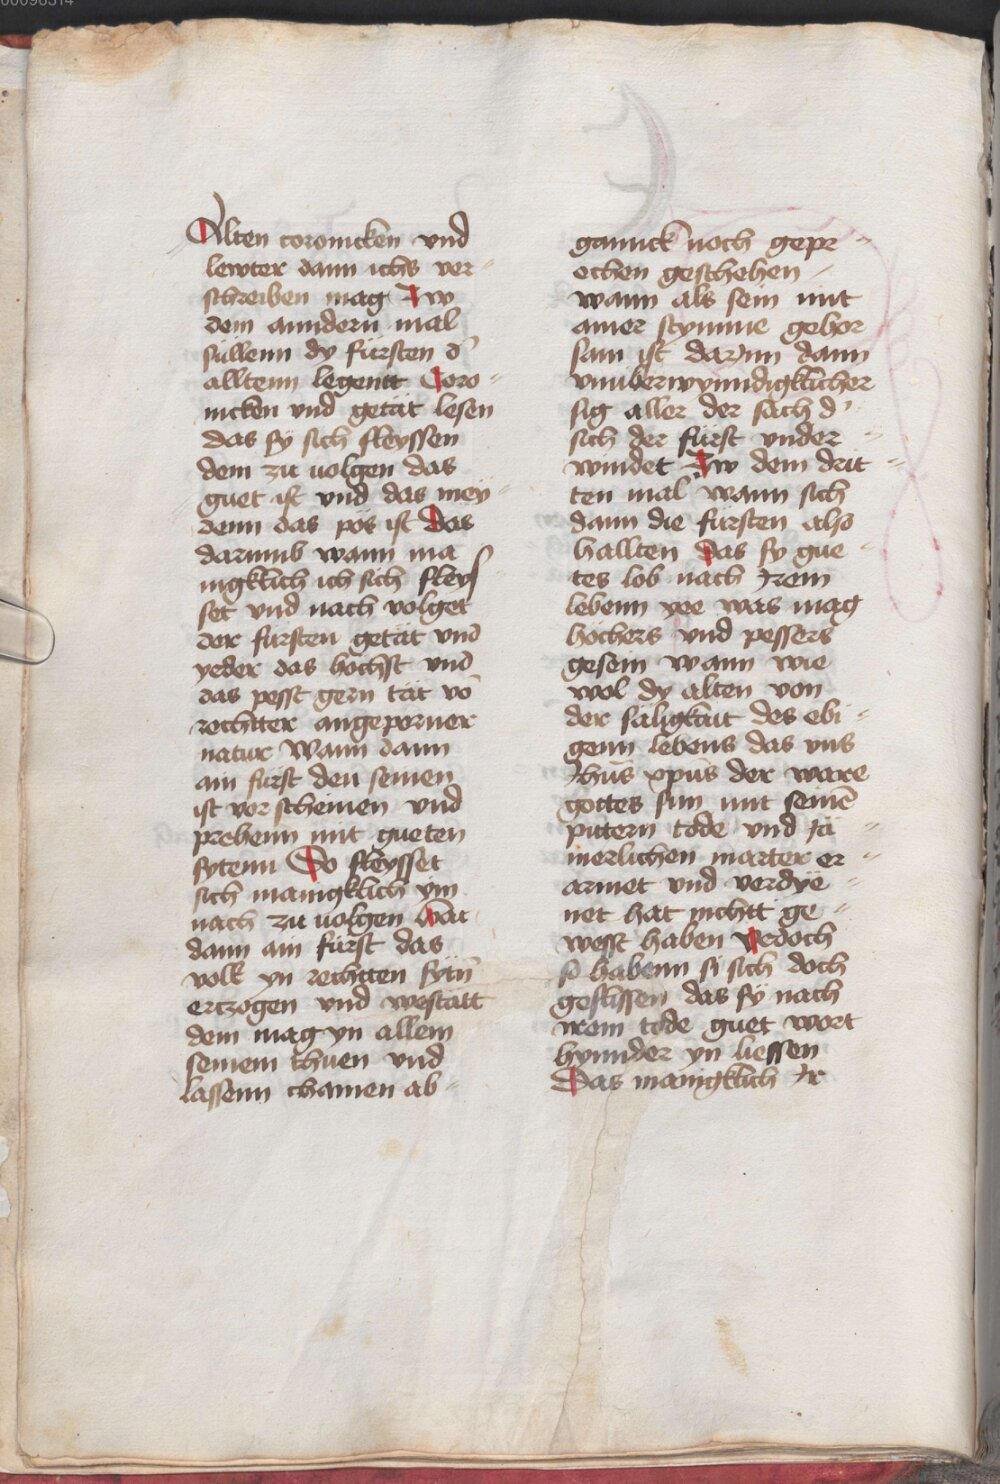 00098314
Alten coronicken und
lewter dann ichs ver-
schreiben mag Zw
dem anndern mal
süllenn dy fürsten d'
alltenn legentt Coro-
nicken und getät lesen
das sÿ sich fleyssen
dem zu uolgen das
guet ist und das meÿ-
denn das pös ist Das
darumb wann ma
nigklich ich sich fleys
set und nach volget
der fürsten getät und
yeder das höchst und
das pesst gern tät vō
rechtter angeporner
natur Wann dann
ain fürst den seinen
ist vor scheinen und
prehenn mit gueten
sytenn So fleysset
sich manigklich ym
nach zu uolgen Wan
dann ain fürst das
volk yn rechtten sytn̄
erczogen und westätt
dem mag yn allem
seinem thuen und
lassenn chainen ab-
gannck noch gepr-
echen geschehen
wann als sein mit
ainer stymme gehor
sam ist darjnn dann
vnüberwynndigklicher
sig aller der sach d'
sich der fürst vnder-
windet Zw dem drit-
ten mal wann sich
dann die fürsten also
hallten Das sy gue-
tes lob nach Jrem
lebenn yee was mag
höchers und pessers
gesein wann wie
wol dy alten von
der säligkait des ebi-
genn lebens das vns
Jhūs xpūs der ware
gottes sun mit seinē
pittern tode und Jä-
merlichen marter er-
arnnet und verdye-
net hat nichtt ge-
wesst haben Yedoch
so habenn si sich doch
geflissen das sÿ nach
irem tode guet wort
hynnder yn liessen
Das manigklich Jr